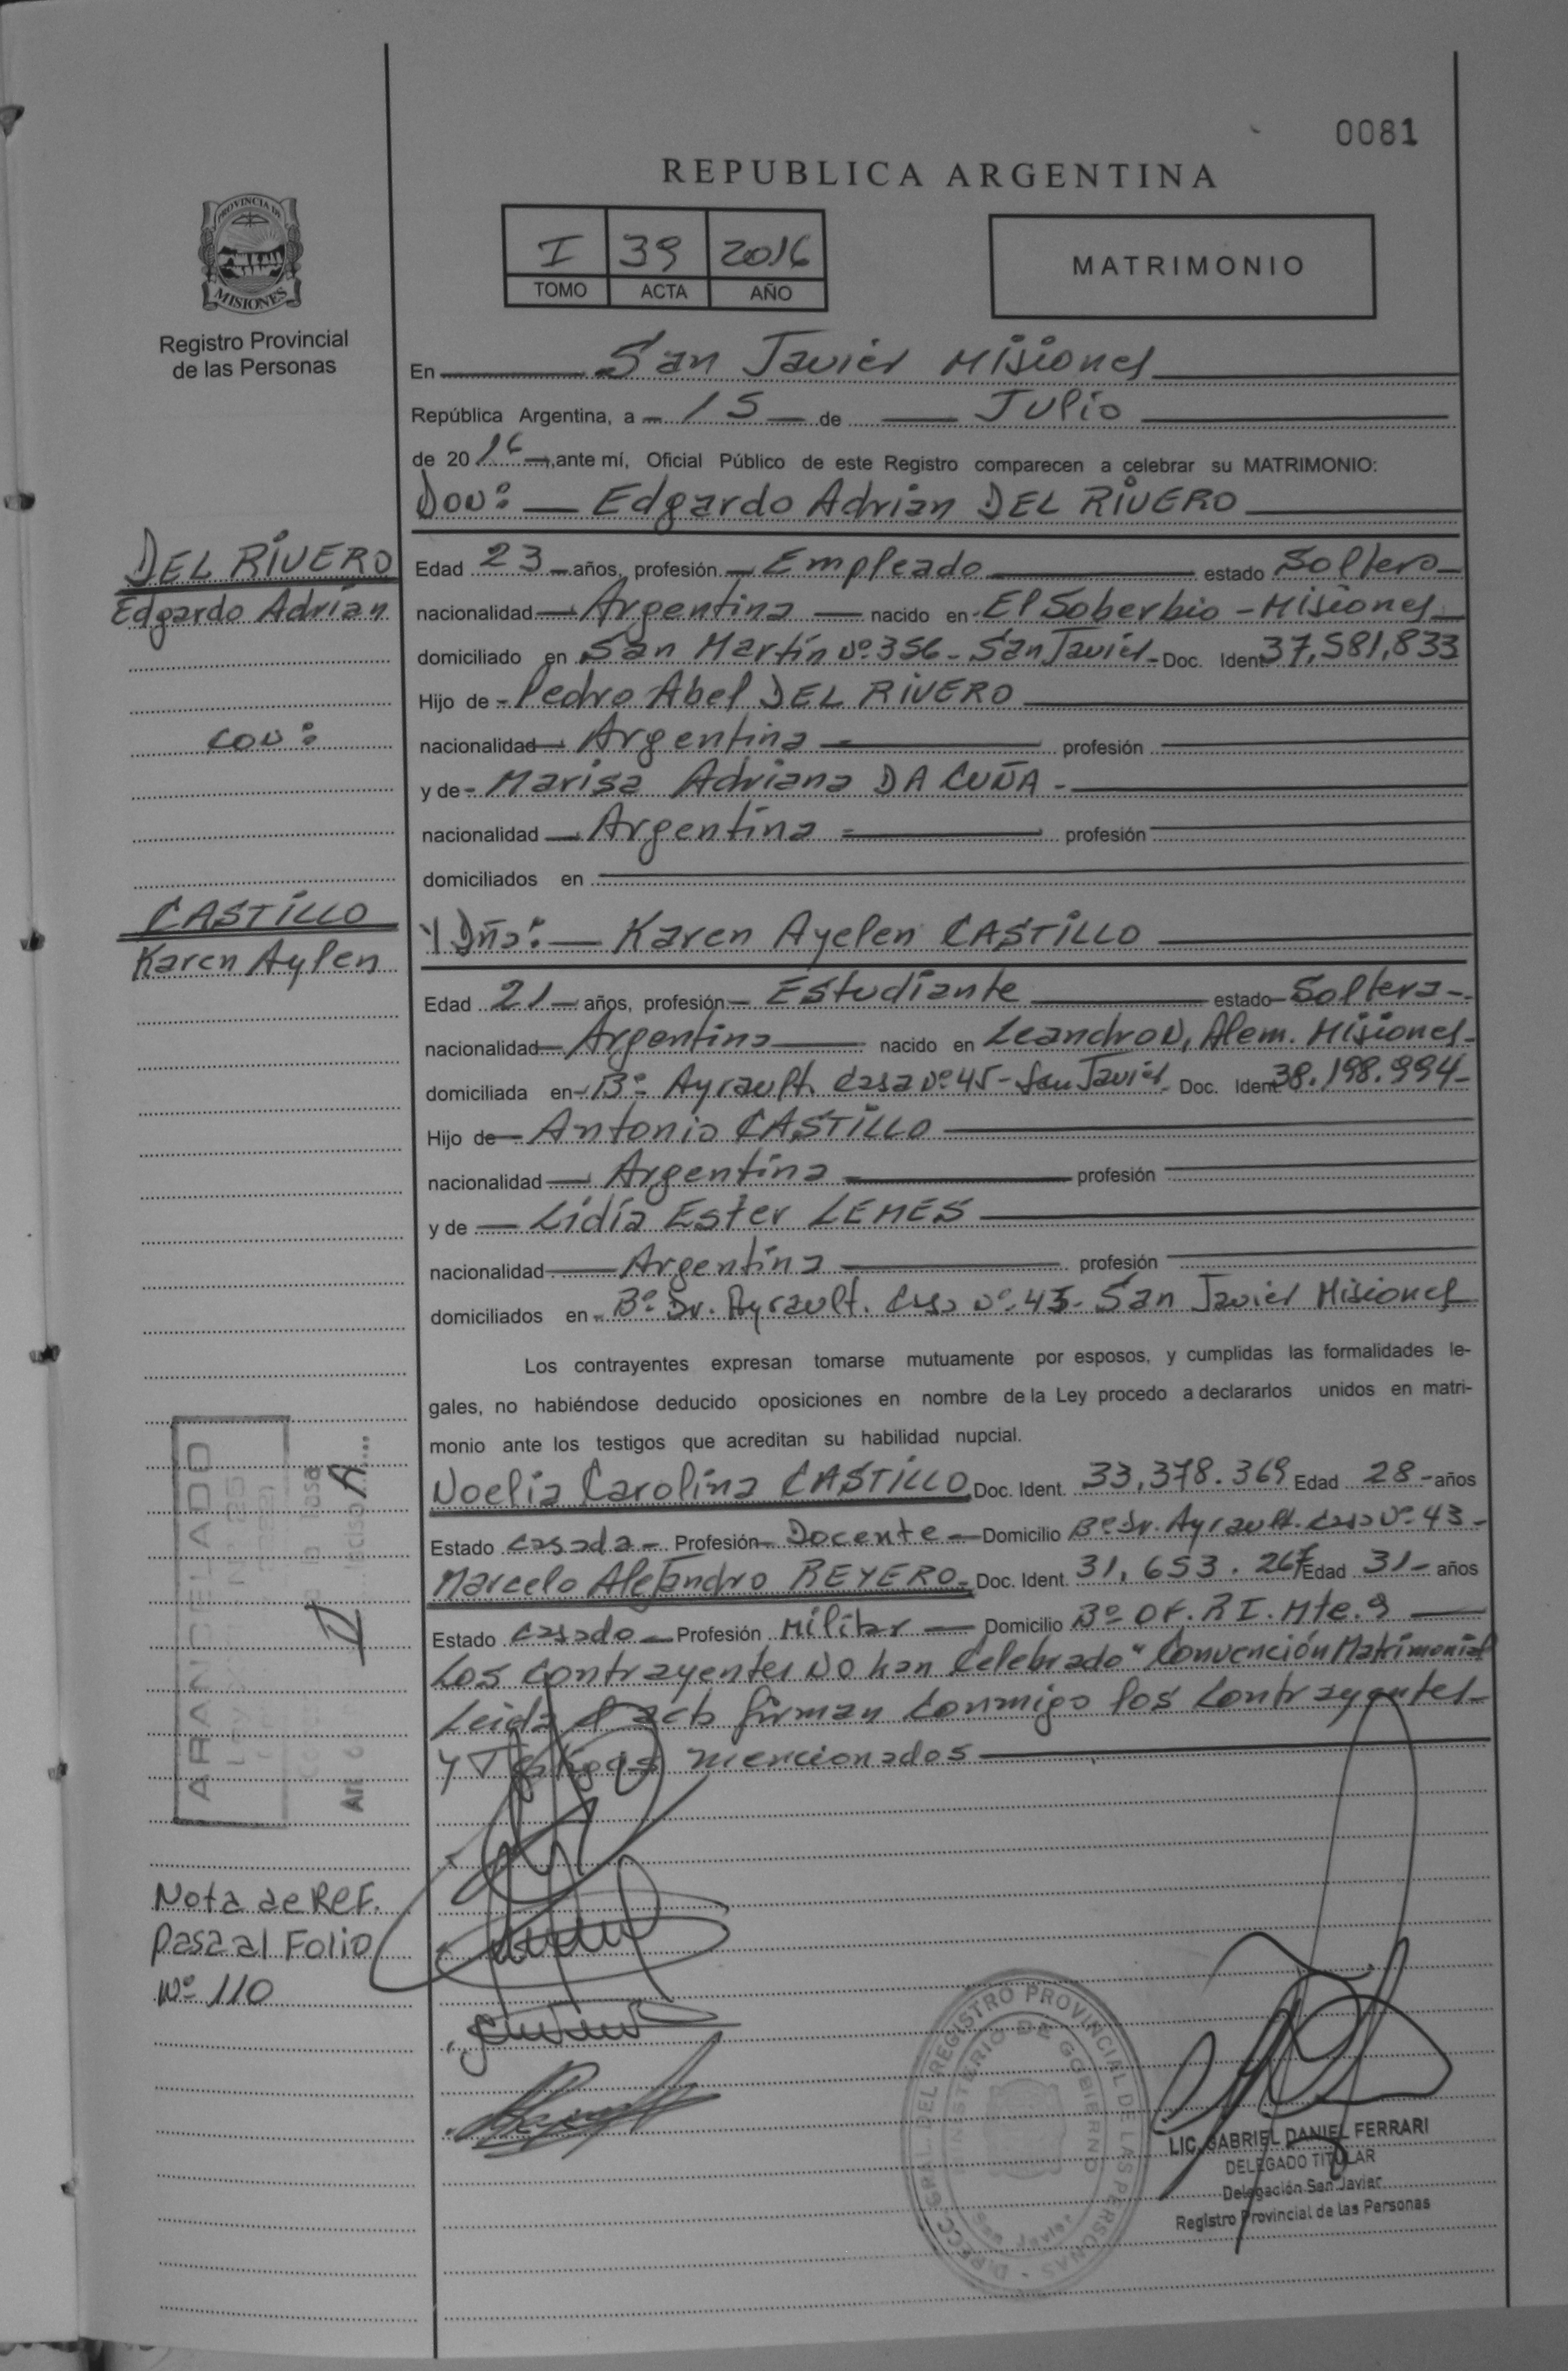 0081
REPUBLICA ARGENTINA
I 39 2016
TOMO ACTA AÑO
MATRIMONIO
PROVINCIA DE
MISIONES
Registro Provincial
de las Personas
En San Javier Misiones
República Argentina, a 15 de Julio
de 2016, ante mí, Oficial Público de este Registro comparecen a celebrar su MATRIMONIO:
Don: Edgardo Adrián DEL RIVERO
DEL RIVERO
Edgardo Adrián
con:
CASTILLO
Karen Aylen
Edad 23 años, profesión Empleado estado Soltero
nacionalidad Argentina nacido en El Soberbio - Misiones
domiciliado en San Martín Nº 356 - San Javier - Doc. Ident. 37,581,833
Hijo de Pedro Abel DEL RIVERO
nacionalidad Argentina profesión
y de Marisa Adriana DA CUÑA
nacionalidad Argentina profesión
domiciliados en
Y Dña: Karen Ayelen CASTILLO
Edad 21 años, profesión Estudiante estado Soltera
nacionalidad Argentina nacido en Leandro N, Alem. Misiones
domiciliada en Bº Ayrault. Casa Nº 45 - San Javier Doc. Ident. 38.198.994
Hijo de Antonio CASTILLO
nacionalidad Argentina profesión
y de Lidía Ester LEMES
nacionalidad Argentina profesión
domiciliados en Bº Dr. Ayrault. Casa Nº 45 - San Javier Misiones
Los contrayentes expresan tomarse mutuamente por esposos, y cumplidas las formalidades le-
gales, no habiéndose deducido oposiciones en nombre de la Ley procedo a declararlos unidos en matri-
monio ante los testigos que acreditan su habilidad nupcial.
Noelia Carolina CASTILLO Doc. Ident. 33,378.369 Edad 28 años
Estado casada Profesión Docente Domicilio Bº Dr. Ayrault. Casa Nº 43
Marcelo Alejandro REYERO Doc. Ident. 31,653.267 Edad 31 años
Estado casado Profesión Militar Domicilio Bº Of. RI. Mte. 9
Los contrayentes No han Celebrado "Convención Matrimonial
Leida el acta firman conmigo los contrayentes
y Testigos mencionados
ARANCELADO
Art. 6 II Inciso A
Nota de Ref.
Pasa al Folio
Nº 110
REGISTRO PROVINCIAL DE LAS PERSONAS
MINISTERIO DE GOBIERNO
LIC. GABRIEL DANIEL FERRARI
DELEGADO TITULAR
Delegación San Javier
Registro Provincial de las Personas